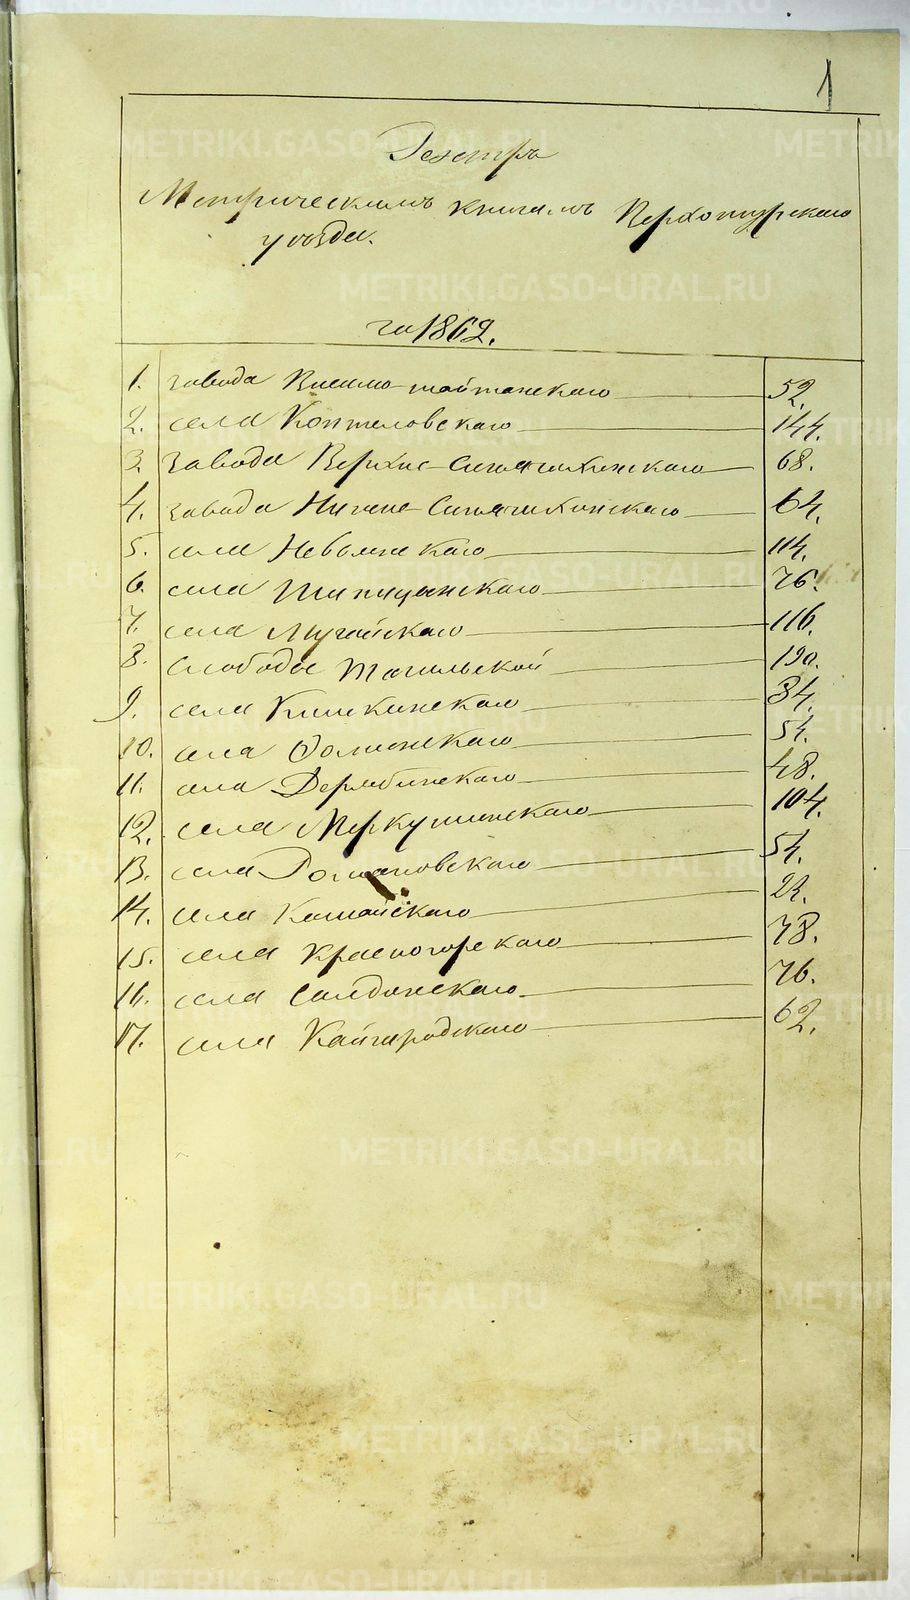 1
Реэстръ
Метрическимъ книгамъ Верхотурскаго
уѣзда.
за 1862.
1. завода Висимо-шайтанскаго 52.
2. села Коптеловскаго 144.
3. завода Верхне-Синячихинскаго 68.
4. завода Нижне-Синячихинскаго 64.
5. села Невьянскаго 114.
6. села Шипицынскаго 76.
7. села Мугайскаго 116.
8. Слободы Тагильской 190.
9. села Кишкинскаго 84.
10. села Фоминскаго 54.
11. села Дерябинскаго 48.
12. села Меркушинскаго 104.
13. села Романовскаго 54.
14. села Кошайскаго
15. села Красногорскаго 78.
16. села Салдинскаго 76.
17. села Кайгородскаго 62.
METRIKI.GASO-URAL.RU